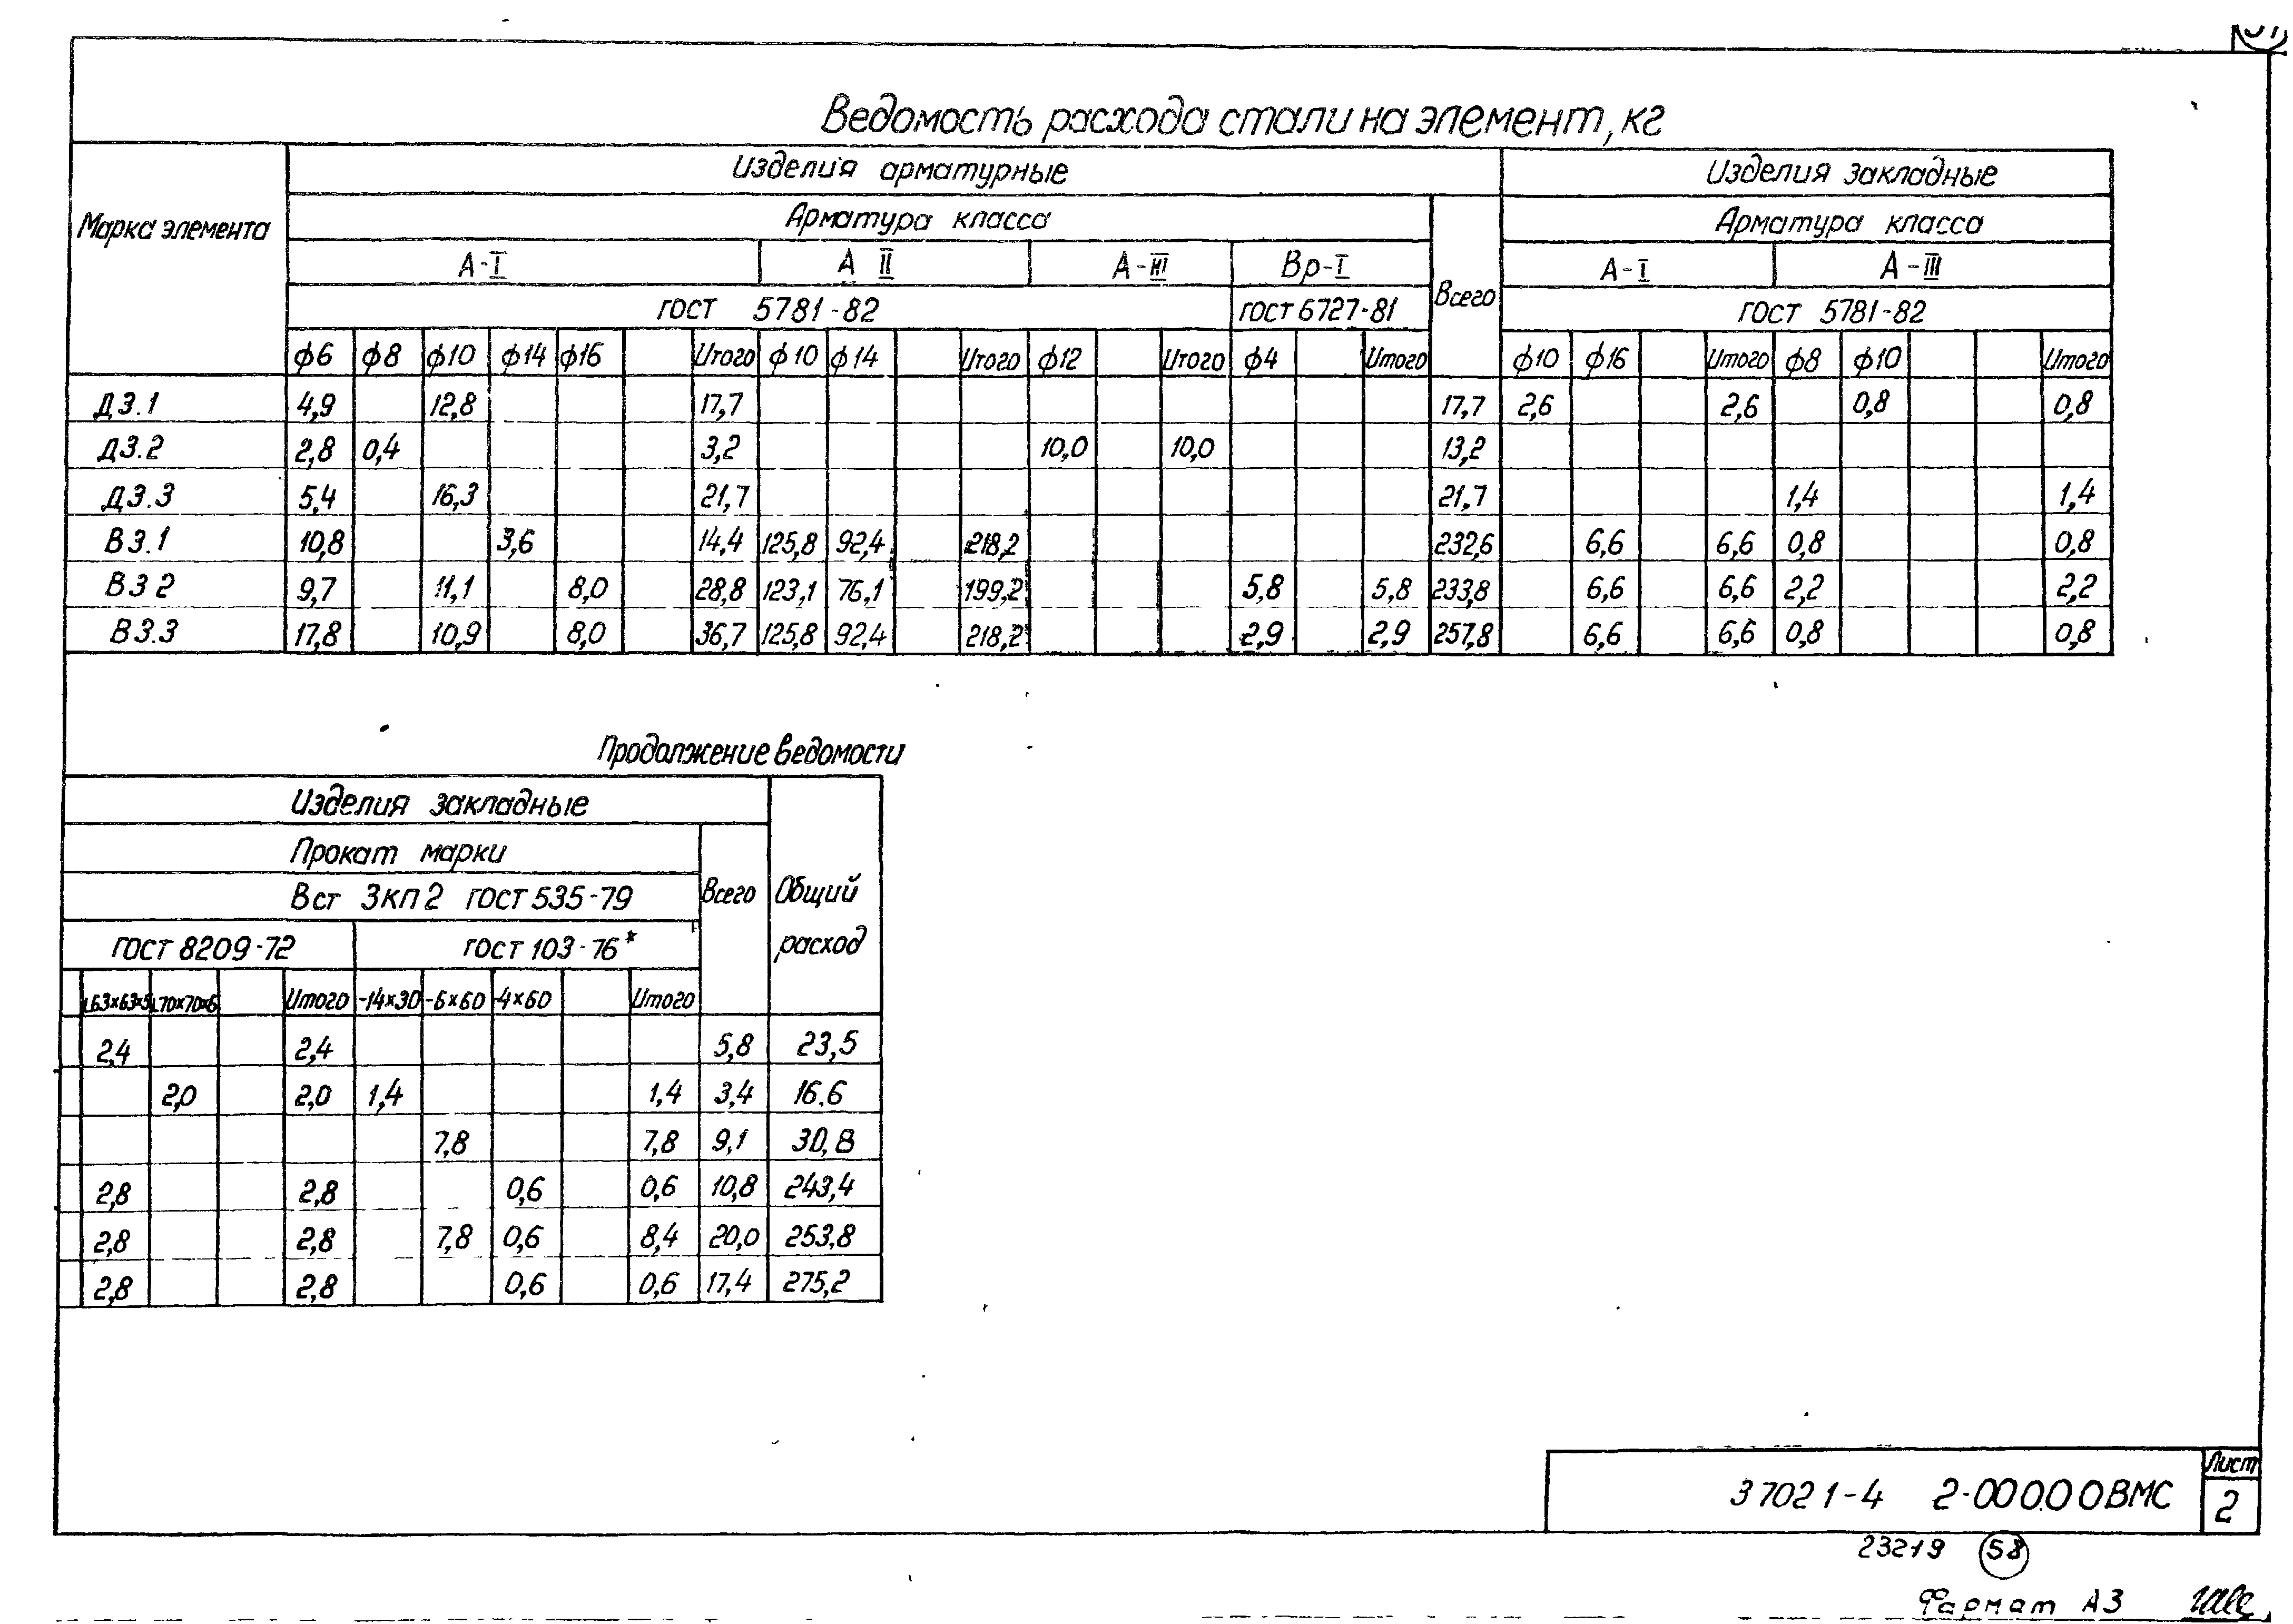 Ведомость расхода стали на элемент, кг
Марка элемента
Изделия арматурные
Изделия закладные
Арматура класса
Всего
Арматура класса
А-I А II А-III Вр-I А-I А-III
ГОСТ 5781-82 ГОСТ 6727-81 ГОСТ 5781-82
ф6 ф8 ф10 ф14 ф16 Итого ф10 ф14 Итого ф12 Итого ф4 Итого ф10 ф16 Итого ф8 ф10 Итого
Д3.1 4,9 12,8 17,7 17,7 2,6 2,6 0,8 0,8
Д3.2 2,8 0,4 3,2 10,0 10,0 13,2
Д3.3 5,4 16,3 21,7 21,7 1,4 1,4
В3.1 10,8 3,6 14,4 125,8 92,4 218,2 232,6 6,6 6,6 0,8 0,8
В3 2 9,7 11,1 8,0 28,8 123,1 76,1 199,2 5,8 5,8 233,8 6,6 6,6 2,2 2,2
В3.3 17,8 10,9 8,0 36,7 125,8 92,4 218,2 2,9 2,9 257,8 6,6 6,6 0,8 0,8
Продолжение ведомости
Изделия закладные
Прокат марки
Вст 3кп2 ГОСТ 535-79
Всего
Общий
расход
ГОСТ 8209-72 ГОСТ 103-76*
L63×63×5 L70×70×6 Итого -14×30 -6×60 -4×60 Итого
2,4 2,4 5,8 23,5
2,0 2,0 1,4 1,4 3,4 16.6
7,8 7,8 9,1 30,8
2,8 2,8 0,6 0,6 10,8 243,4
2,8 2,8 7,8 0,6 8,4 20,0 253,8
2,8 2,8 0,6 0,6 17,4 275,2
3702 1-4 2-000.00ВМС
Лист
2
23219 58
Формат А3